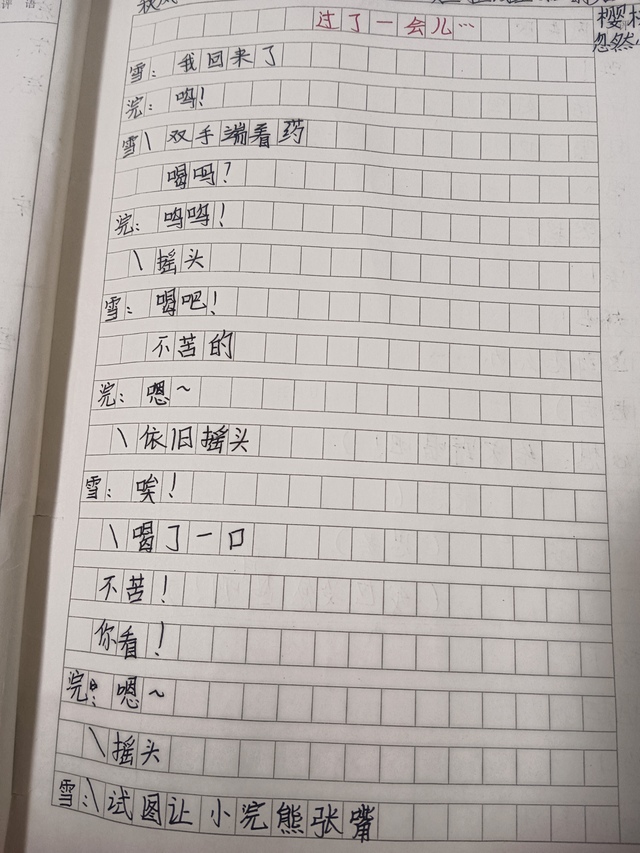 评 语
过了一会儿…
雪：我回来了
浣：呜！
雪：\双手端着药
喝吗？
浣：呜呜！
\摇头
雪：喝吧！
不苦的
浣：嗯~
\依旧摇头
雪：唉！
\喝了一口
不苦！
你看！
浣：嗯~
\摇头
雪：\试图让小浣熊张嘴
忽然